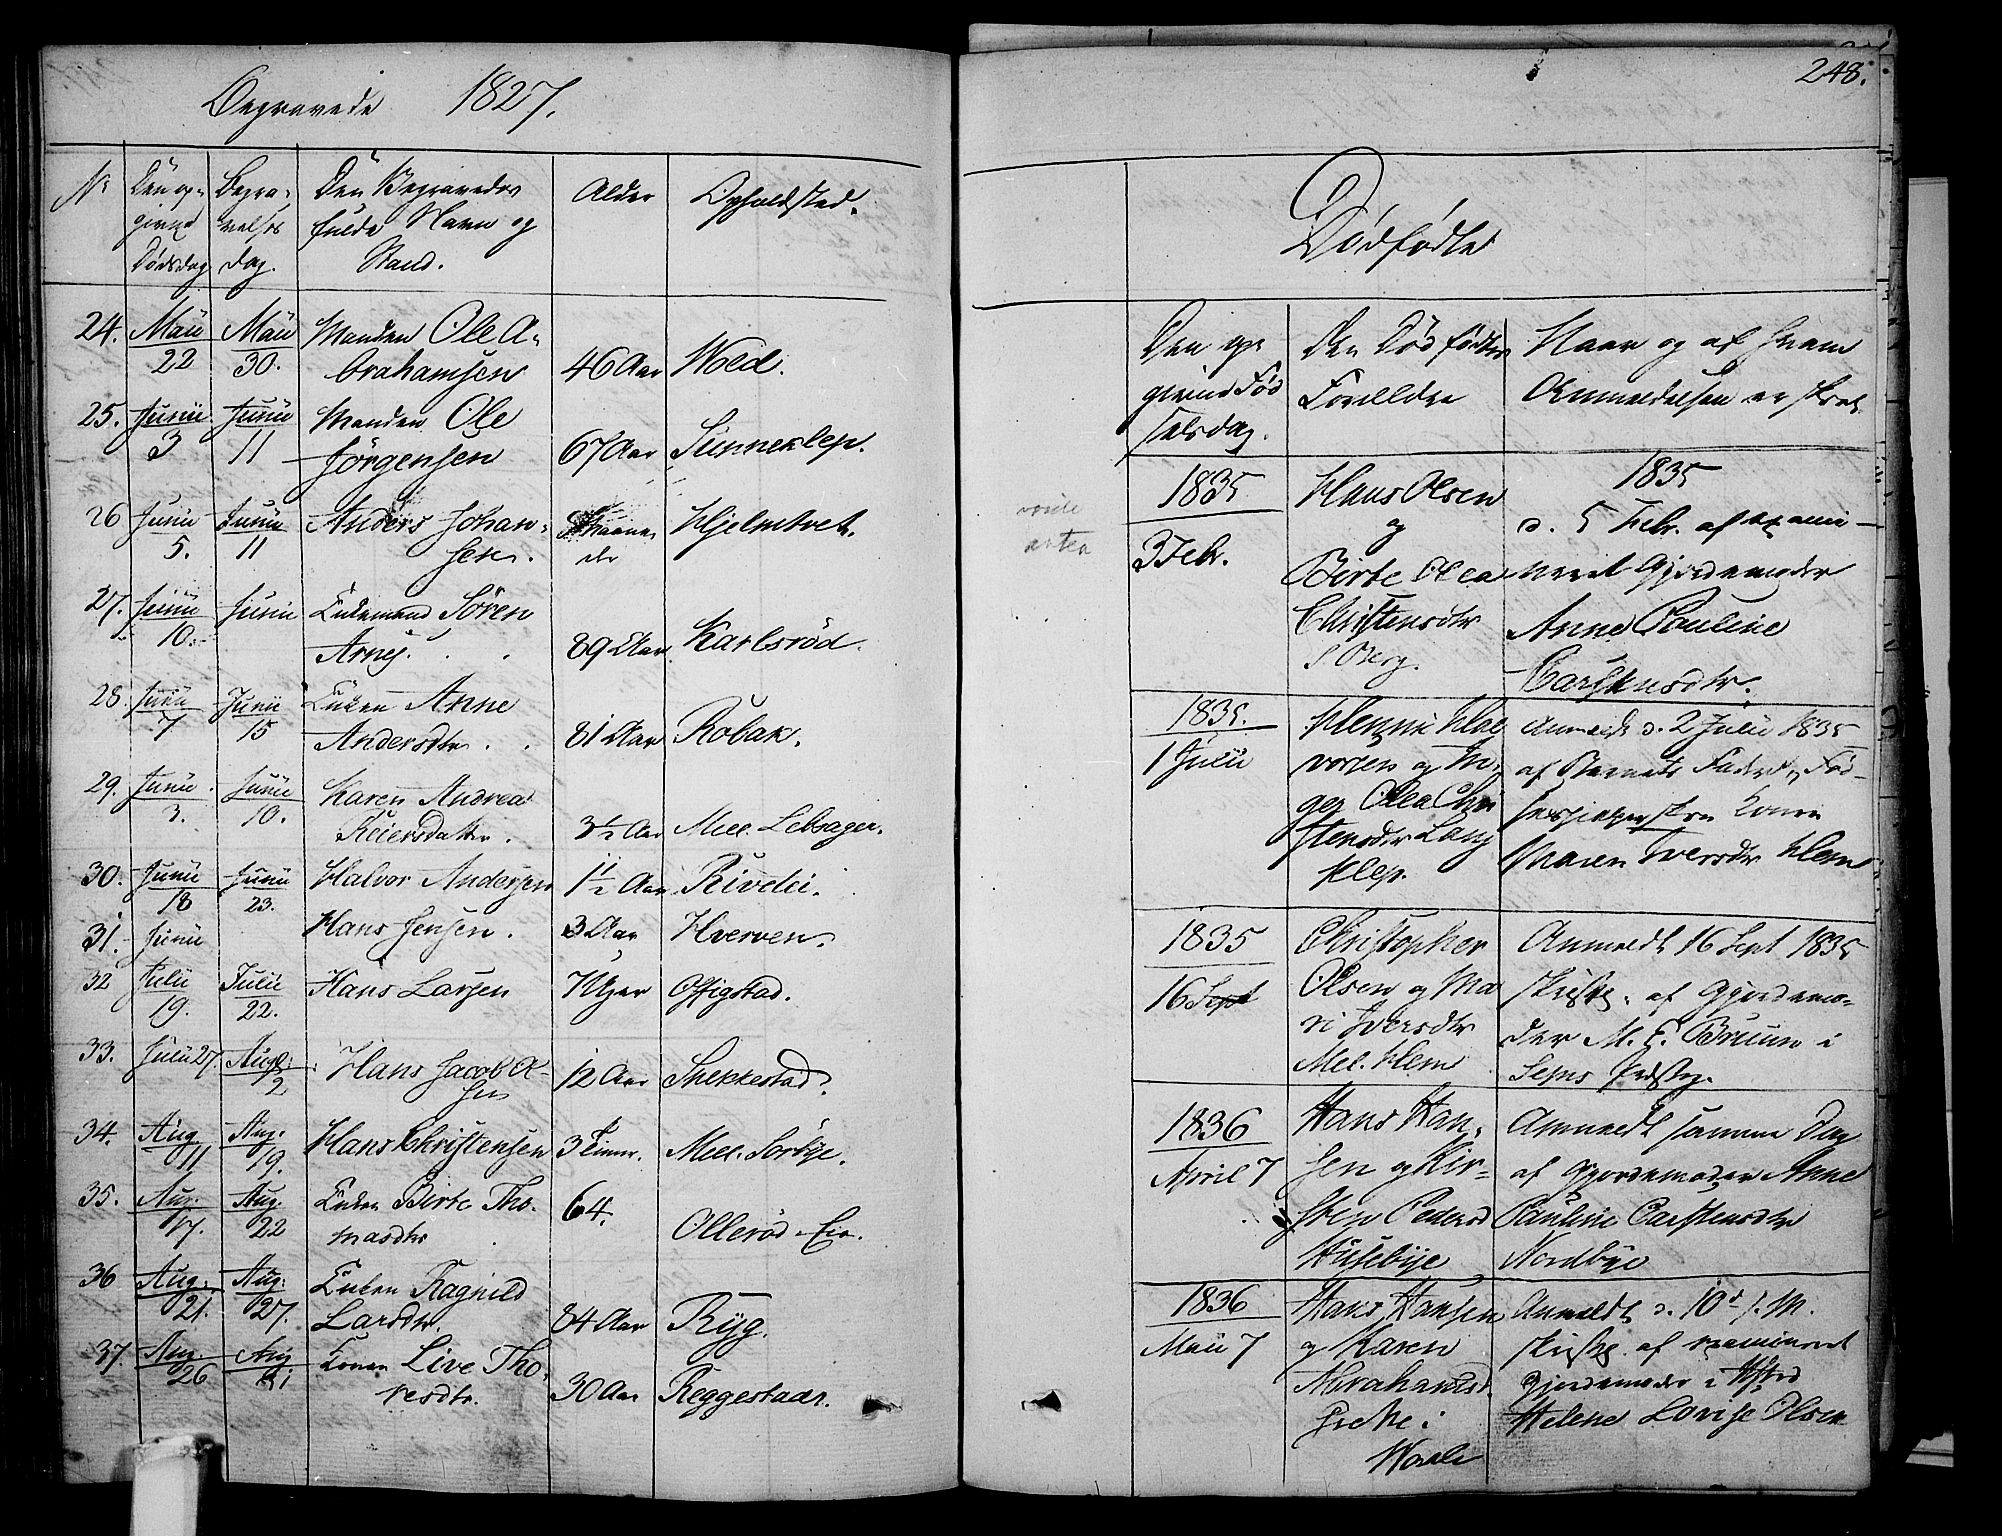 Begravede 1827.
Nr
Den op-
givne
Dødsdag
Begra-
velses
dag.
Den Begravedes
fulde Navn og
Stand.
Alder
Opholdsted.
24. Maii 22 Maii 30. Manden Ole A-
brahamsen 46 Aar Wold.
25. Junii 3 Junii 11 Manden Ole
Jørgensen 67 Aar Sunneklep.
26 Junii 5. Junii 11 Anders Johan-
sen. Maane-
der Hjelmtvet.
27. Junii 10. Junii Enkemand Søren
Arnes. 89 Aar Karlsrød.
28 Junii 7 Junii 15 Enken Anne
Andersdtr. 81 Aar Robak.
29. Junii 3. Junii 10. Karen Andrea
Reiersdatter. 3½ Aar Mel. Lebsager.
30. Junii 18 Junii 23. Halvor Andersen 1½ Aar Rivelei.
31. Junii Hans Jensen. 3 Aar Hverven.
32 Julii 19. Julii 22. Hans Larsen 7 Uger Offigstad.
33. Julii 27. Aug. 2 Hans Jacob A-
sen 12 Aar Skekkestad.
34. Aug 11 Aug. 19. Hans Christensen 3 Timer. Mel. Sørbye.
35. Aug. 17. Aug. 22 Enken Birte Tho-
masdtr 64. Ollerød Eie.
36 Aug. 21. Aug. 27. Enken Ragnild
Larsdtr. 84 Aar Ryg.
37 Aug. 26 Aug. Konen Live Tho-
resdtr. 30 Aar Reggestad.
248.
Dødfødte
Den op
givne Fød
selsdag.
Den Dødfødtes
Forældre
Naar og af hvem
Anmeldelsen er skeet
1835
3 Febr.
Hans Olsen
og
Birte Olea
Christensdtr
1835
d. 5 Febr. af exami-
neret Gjordemoder
Anne Pauline
Carstensdtr.
1835.
1 Julii
og In-
ger Olea Chri
stensdtr Lang
klep.
Anmeldt d. 2 Julii 1835
af Barnets Fader og Fød-
selshielpersken Konen
Maren Iversdtr Hem
1835
16 Sept
Christopher
Olsen og Ma
ri Iversdtr
Mel. Hem
Anmeldt 16 Sept 1835
skriftl. af Gjordemo-
der M. E. Bruun i
Sems Præstg.
1836
April 7
Hans Han-
sen og Kir-
sten Pedersd
Husebye
Anmeldt samme Dag
af Gjordemoder Anne
Pauline Carstensdtr
Nordbye
1836
Maii 7
Hans Hansen
og Karen
Abrahamsd.
Anmeldt d. 10d s. M.
skriftl. af examineret
Gjordemoder i
Helene Lovise Olsen